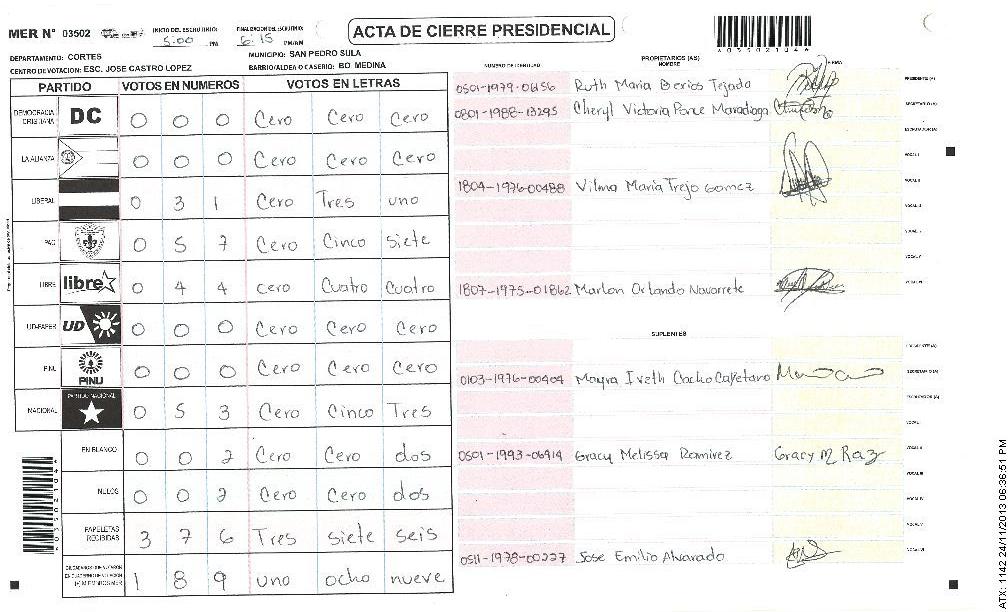 MER N° 03502
INICIO DEL ESCRUTINIO: 5:00 PM
FINALIZACION DEL ESCRUTINIO: 6:15 PM/AM
ACTA DE CIERRE PRESIDENCIAL
DEPARTAMENTO: CORTES
MUNICIPIO: SAN PEDRO SULA
CENTRO DE VOTACION: ESC. JOSE CASTRO LOPEZ
BARRIO/ALDEA O CASERIO: BO MEDINA
PARTIDO VOTOS EN NUMEROS VOTOS EN LETRAS
DEMOCRACIA CRISTIANA DC 0 0 0 Cero Cero Cero
LA ALIANZA 0 0 0 Cero Cero Cero
LIBERAL 0 3 1 Cero Tres uno
PAC 0 5 7 Cero Cinco Siete
LIBRE libre 0 4 4 cero Cuatro Cuatro
UD-FAPER UD 0 0 0 Cero Cero Cero
PINU PINU 0 0 0 Cero Cero Cero
NACIONAL PARTIDO NACIONAL 0 5 3 Cero Cinco Tres
EN BLANCO 0 0 2 Cero Cero dos
NULOS 0 0 2 Cero Cero dos
PAPELETAS RECIBIDAS 3 7 6 Tres siete seis
1 8 9 uno ocho nueve
NUMERO DE IDENTIDAD
PROPIETARIOS (AS)
NOMBRE
FIRMA
0501-1979-01156 Ruth Maria Berios Tejada PRESIDENTE (A)
0801-1988-13295 Cheryl Victoria Ponce Maradiaga SECRETARIO (A)
ESCRUTADOR (A)
VOCAL I
1804-1976-00488 Vilma Maria Trejo Gomez VOCAL II
VOCAL III
VOCAL IV
VOCAL V
1807-1975-01862 Marlon Orlando Navarrete VOCAL VI
SUPLENTES
PRESIDENTE (A)
0103-1976-00404 Mayra Iveth Cacho Cayetano SECRETARIO (A)
ESCRUTADOR (A)
VOCAL I
0501-1993-06914 Gracy Melissa Ramirez VOCAL II
VOCAL III
VOCAL IV
VOCAL V
0511-1978-00227 Jose Emilio Alvarado VOCAL VI
ATX: 1142 24/11/2013 06:36:51 PM